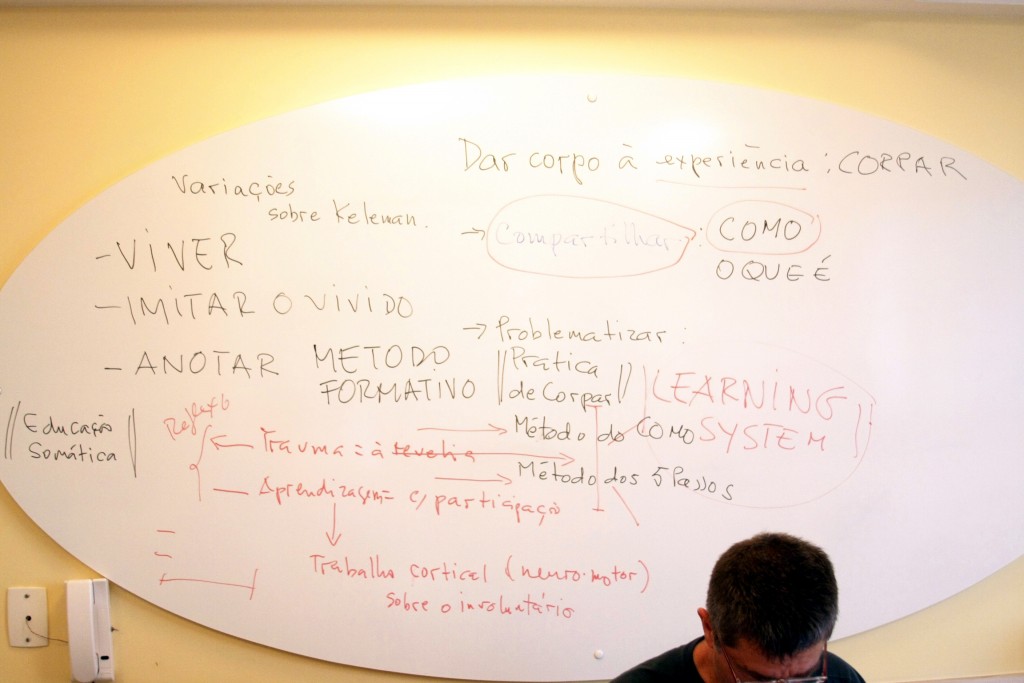 Dar corpo à experiência : CORPAR
Variações
sobre Keleman.
→ Compartilhar : COMO
O QUE É
- VIVER
- IMITAR O VIVIDO
- ANOTAR METODO
FORMATIVO
→ Problematizar :
|| Prática
de Corpar ||
LEARNING
SYSTEM
|| Educação
Somática ||
Reflexo
Trauma = à revelia
Aprendizagem = c/ participação
Método do COMO
Método dos 5 Passos
Trabalho cortical (neuro-motor)
sobre o involuntário